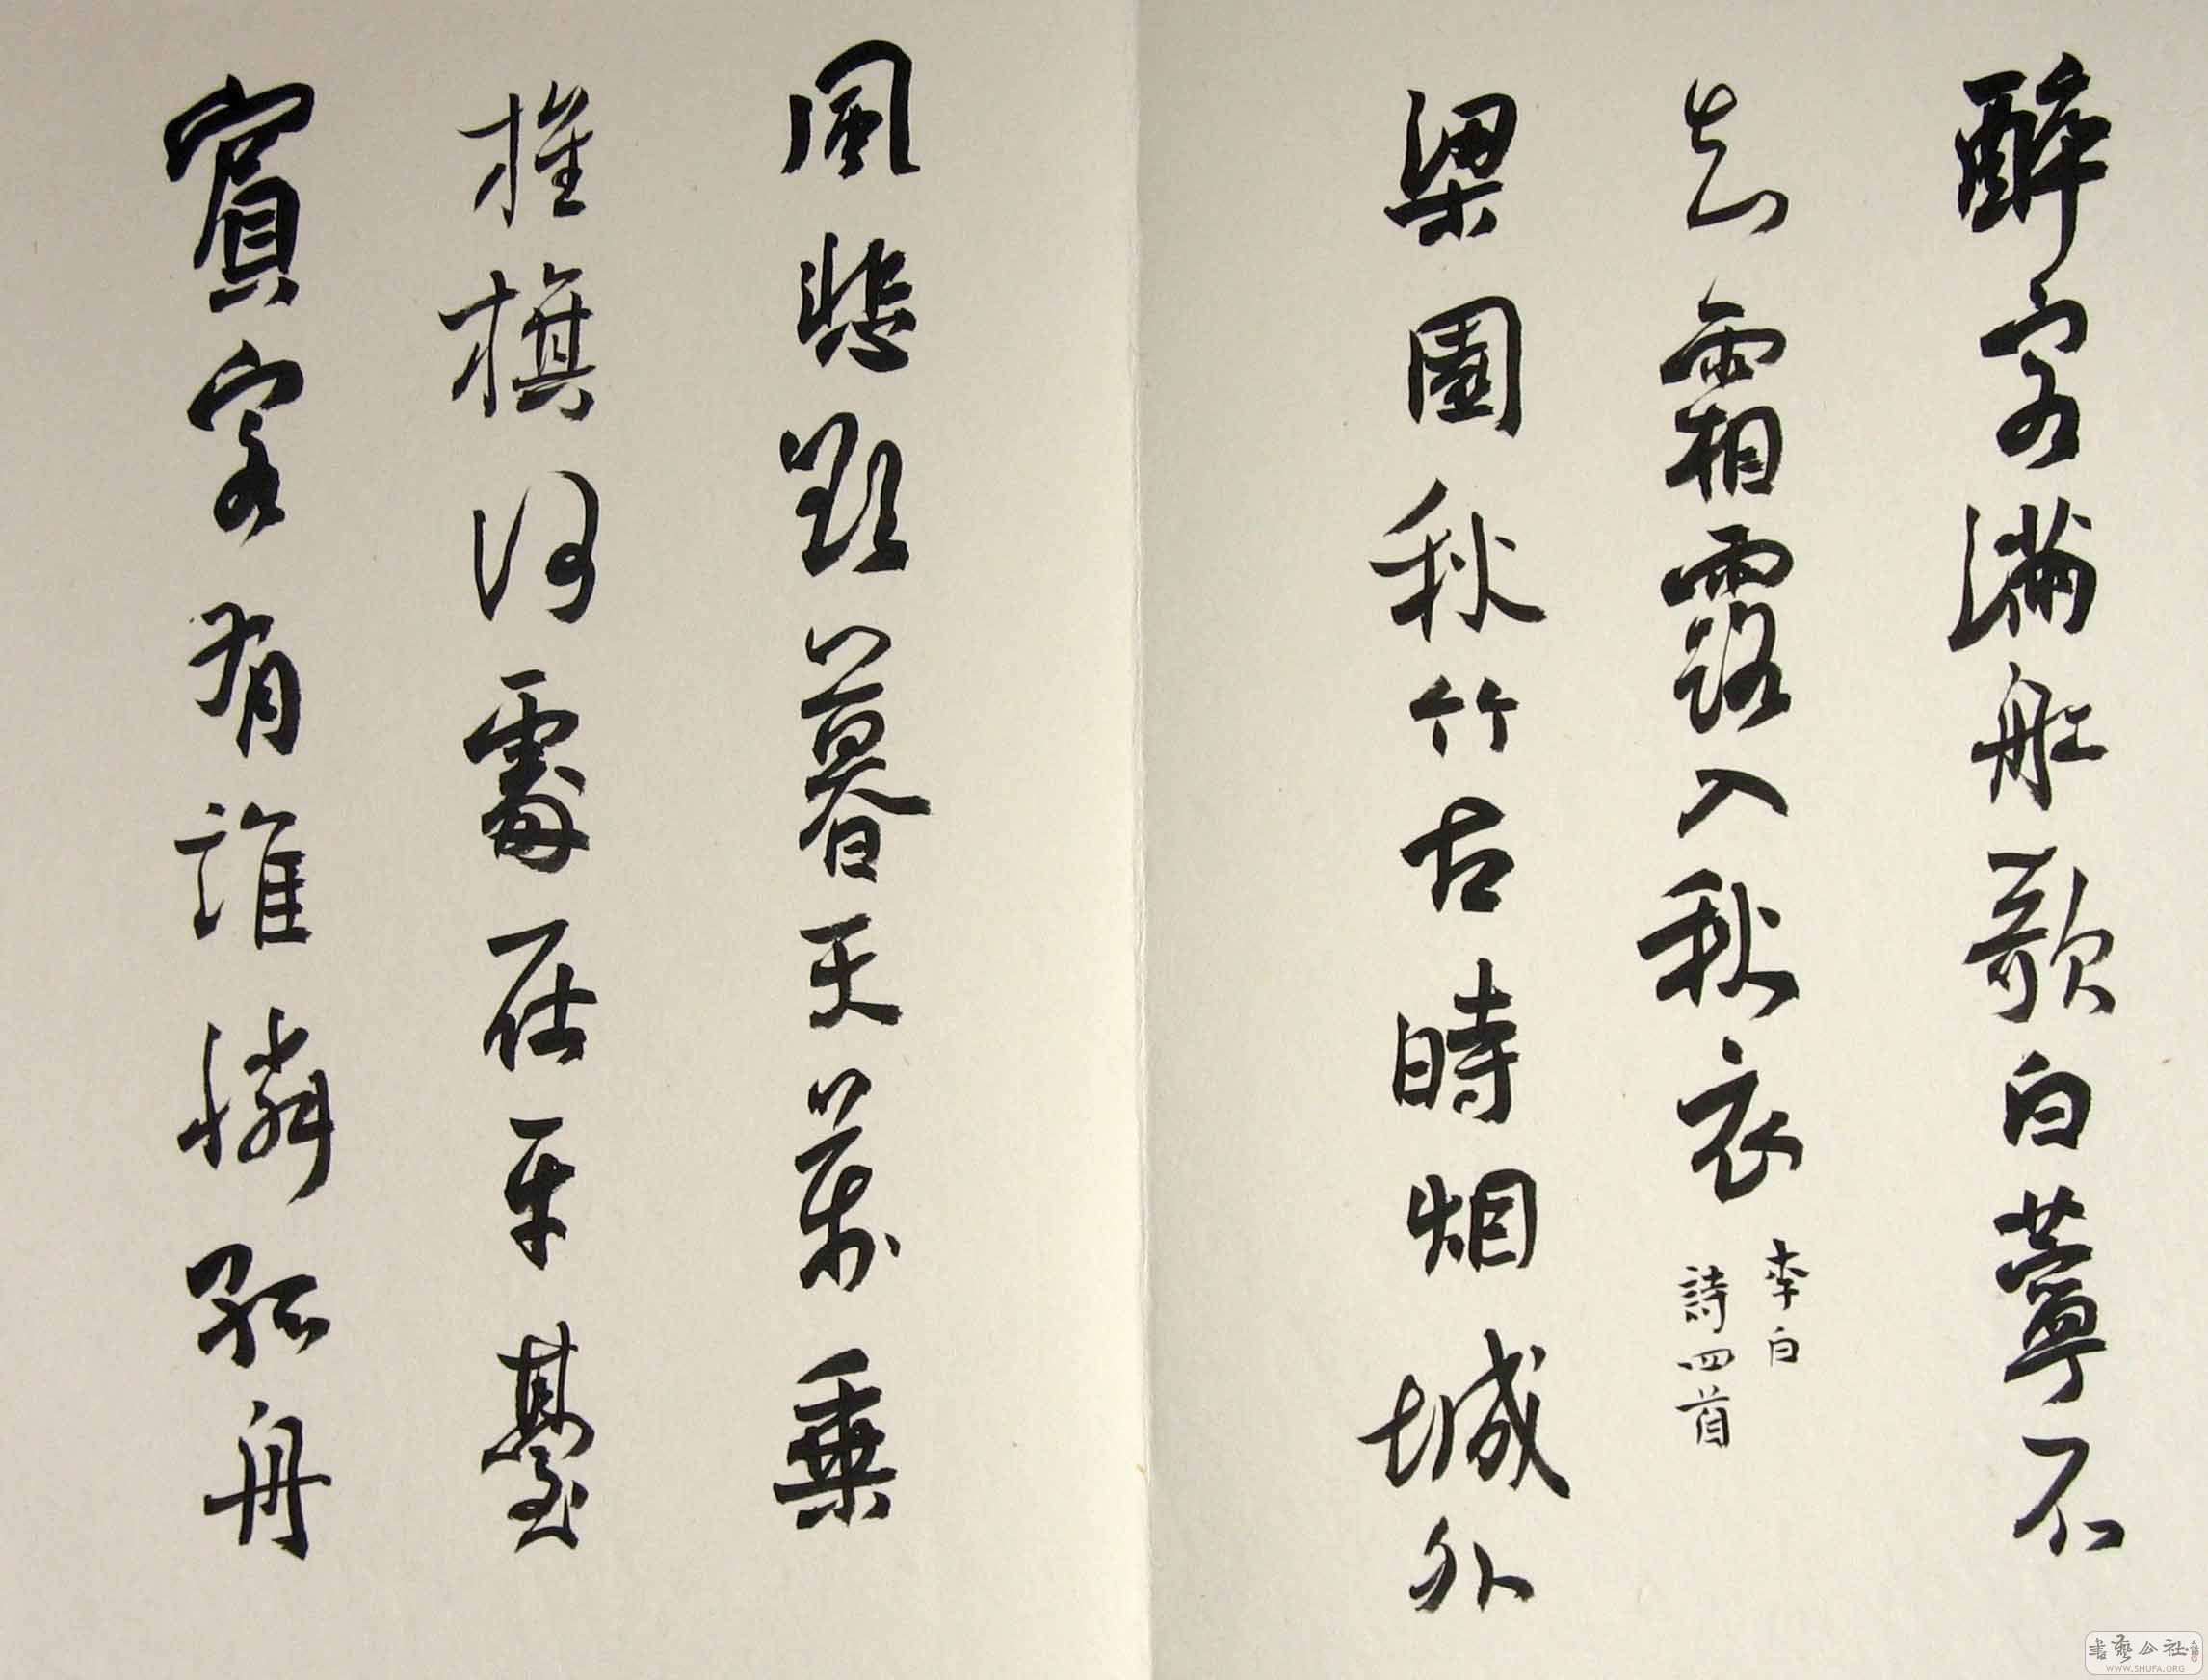 醉客滿舡歌白薴不
知霜露入秋衣
李白
詩四首
梁園秋竹古時烟城外
風悲欲暮天萬乘
旌旗何處在平臺
賓客有誰憐孤舟
書藝公社
WWW.SHUFA.ORG